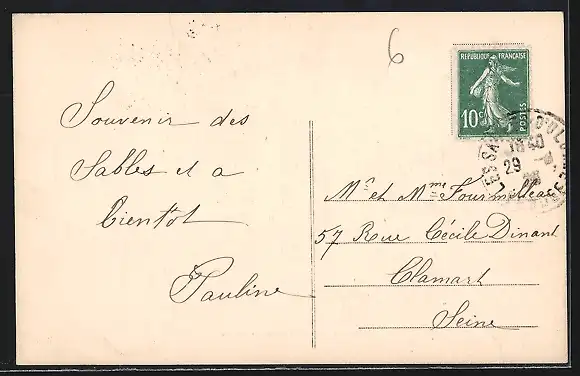 6
REPUBLIQUE FRANÇAISE
10c
POSTES
LES SABLES D'OLONNE
1840
29
Souvenir des
Sables et a
bientôt
Pauline
Mr et Mme Fourmilleau
57 Rue Cécile Dinant
Clamart
Seine